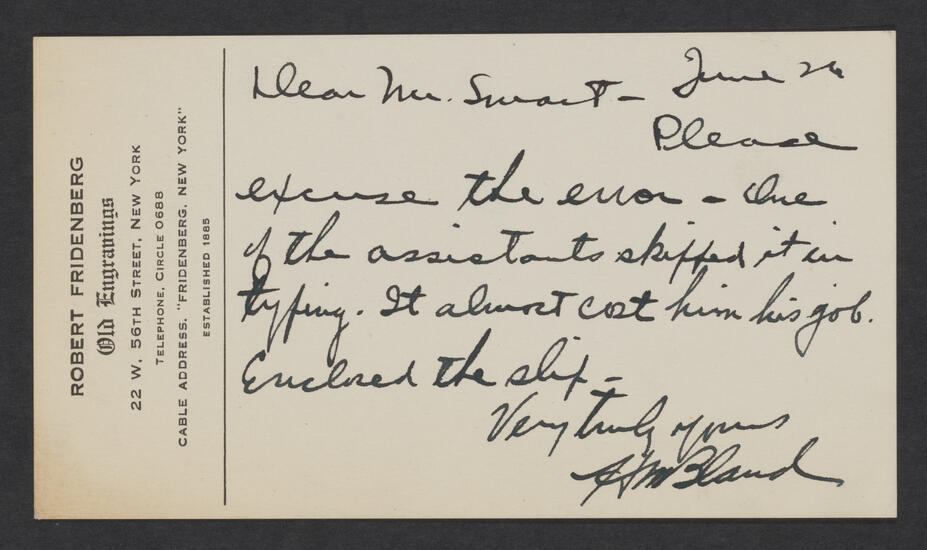 ROBERT FRIDENBERG
Old Engravings
22 W. 56TH STREET, NEW YORK
TELEPHONE, CIRCLE 0688
CABLE ADDRESS, "FRIDENBERG, NEW YORK"
ESTABLISHED 1885
Dear Mr. Swart – June 26
Please
excuse the error – One
of the assistants skipped it in
typing. It almost cost him his job.
Enclosed the slip –
Very truly yours
Bland